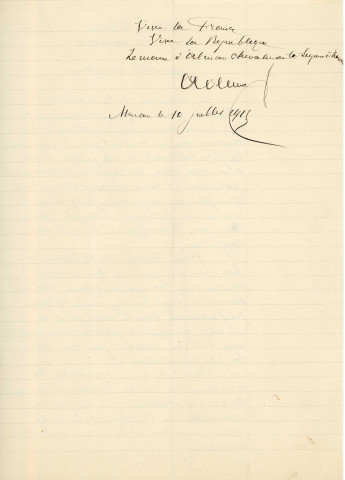 Vive la France
Vive la République
Le maire d' chevalier de la Légion d'hon
le 10 juillet 1915